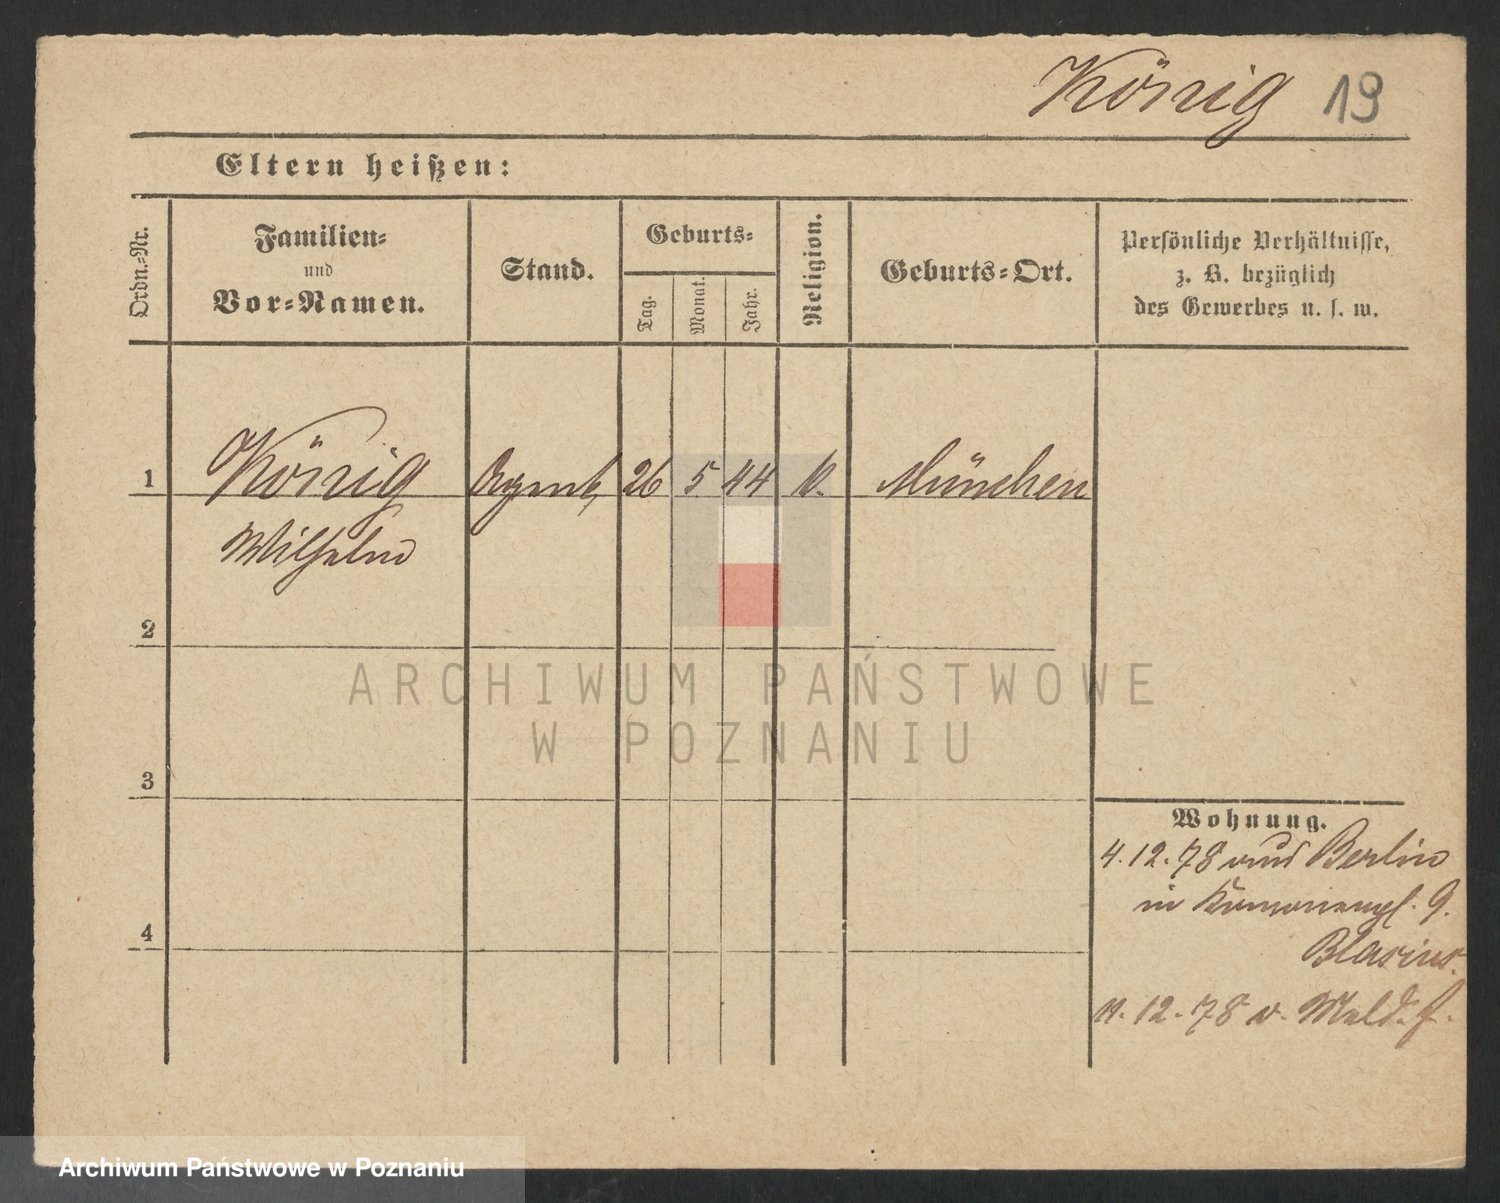 König 19
Eltern heißen:
Ordn.-Nr.
Familien-
und
Vor-Namen.
Stand.
Geburts-
Tag.
Monat.
Jahr.
Religion.
Geburts-Ort.
Persönliche Verhältnisse,
z. B. bezüglich
des Gewerbes u. s. w.
1 König Agent, 26 5 44 München
Wilhelm
2
3
4
Wohnung.
4.12.78 aus Berlin
in 9.
Blasius.
11.12.78 v. Meld.
ARCHIWUM PAŃSTWOWE
W POZNANIU
Archiwum Państwowe w Poznaniu